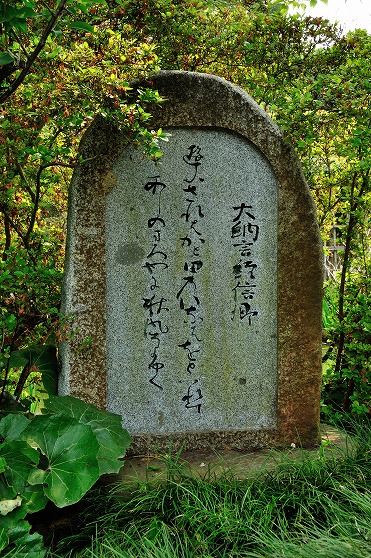 大納言経信卿
夕されハかと田乃いな葉をとつれて
あしのまろやに秋風そふく